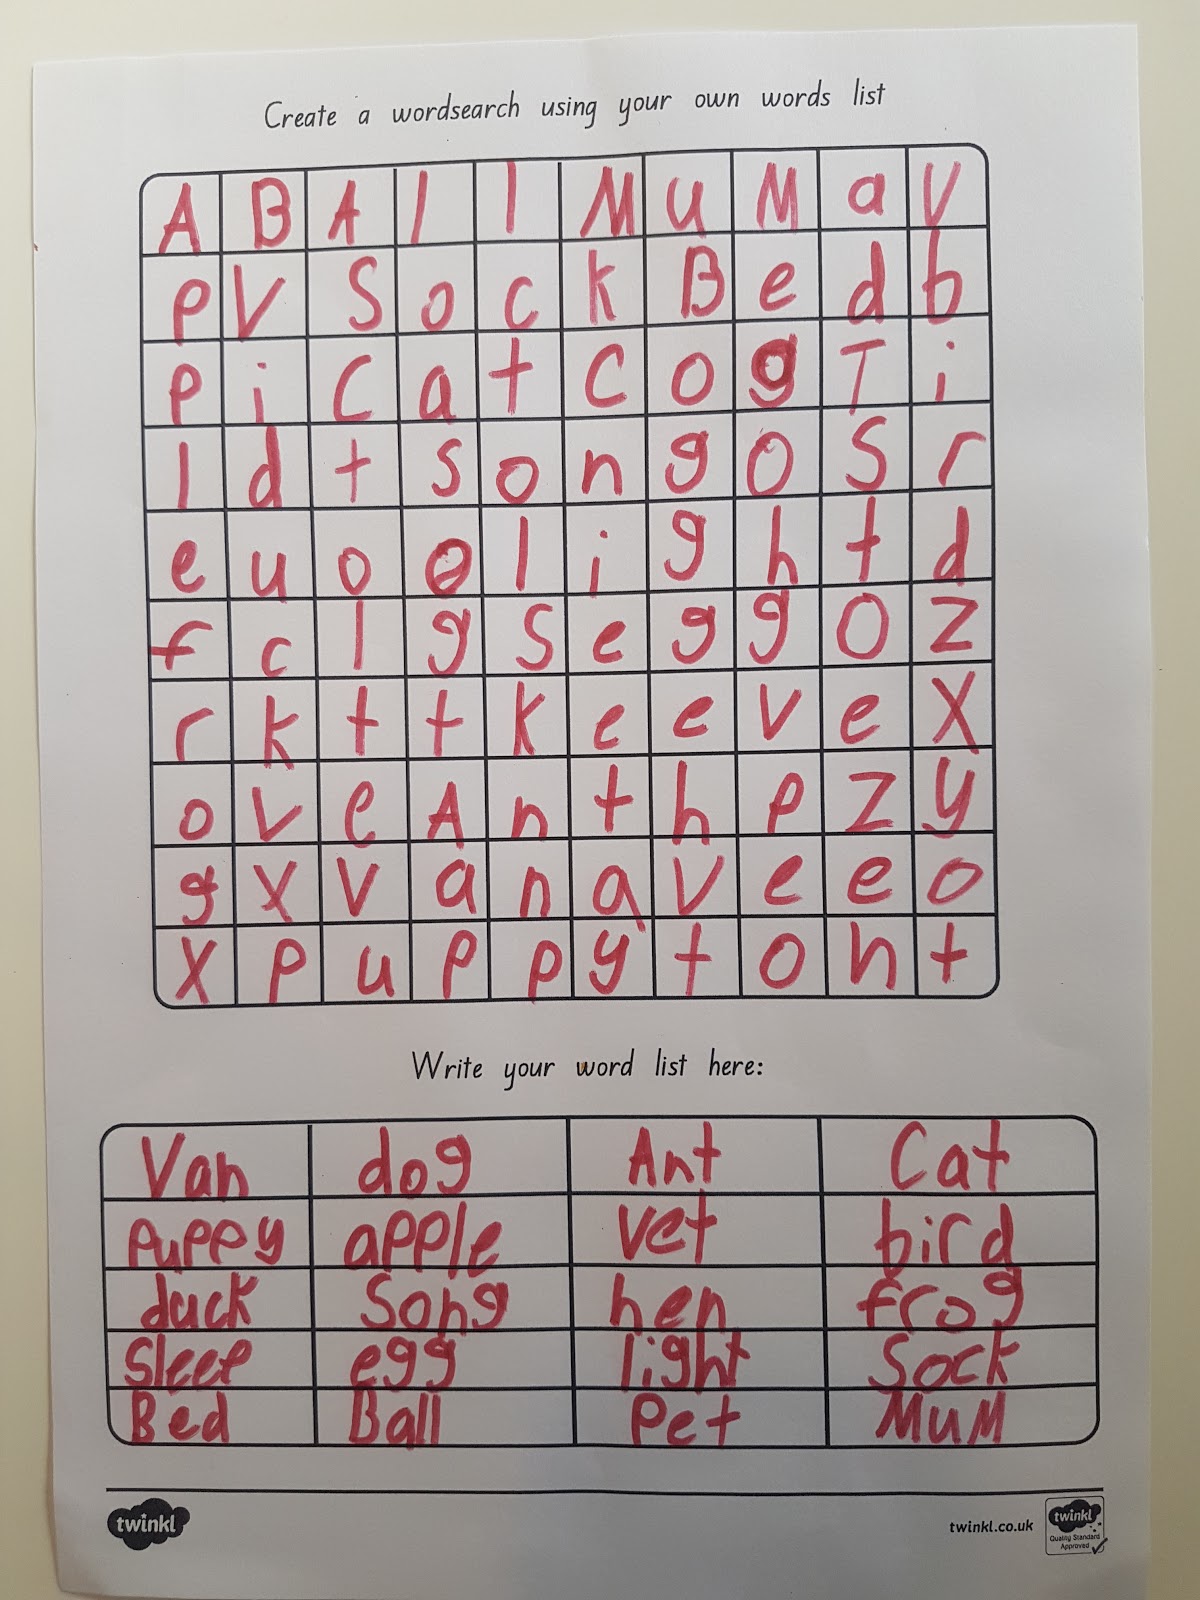 Create a wordsearch using your own words list
A B A l l M u M a V
P V S o c k B e d b
P i C a t C o g T i
l d t s o n g o S r
e u o o l i g h t d
f c l g S e g g O Z
r k t t K e e v e X
o v e A n t h p z y
g X V a n a v e e o
X P u p p y t o n t
Write your word list here:
Van dog Ant Cat
Puppy apple vet bird
duck Song hen frog
Sleep egg light Sock
Bed Ball Pet MuM
twinkl twinkl.co.uk twinkl
Quality Standard
Approved